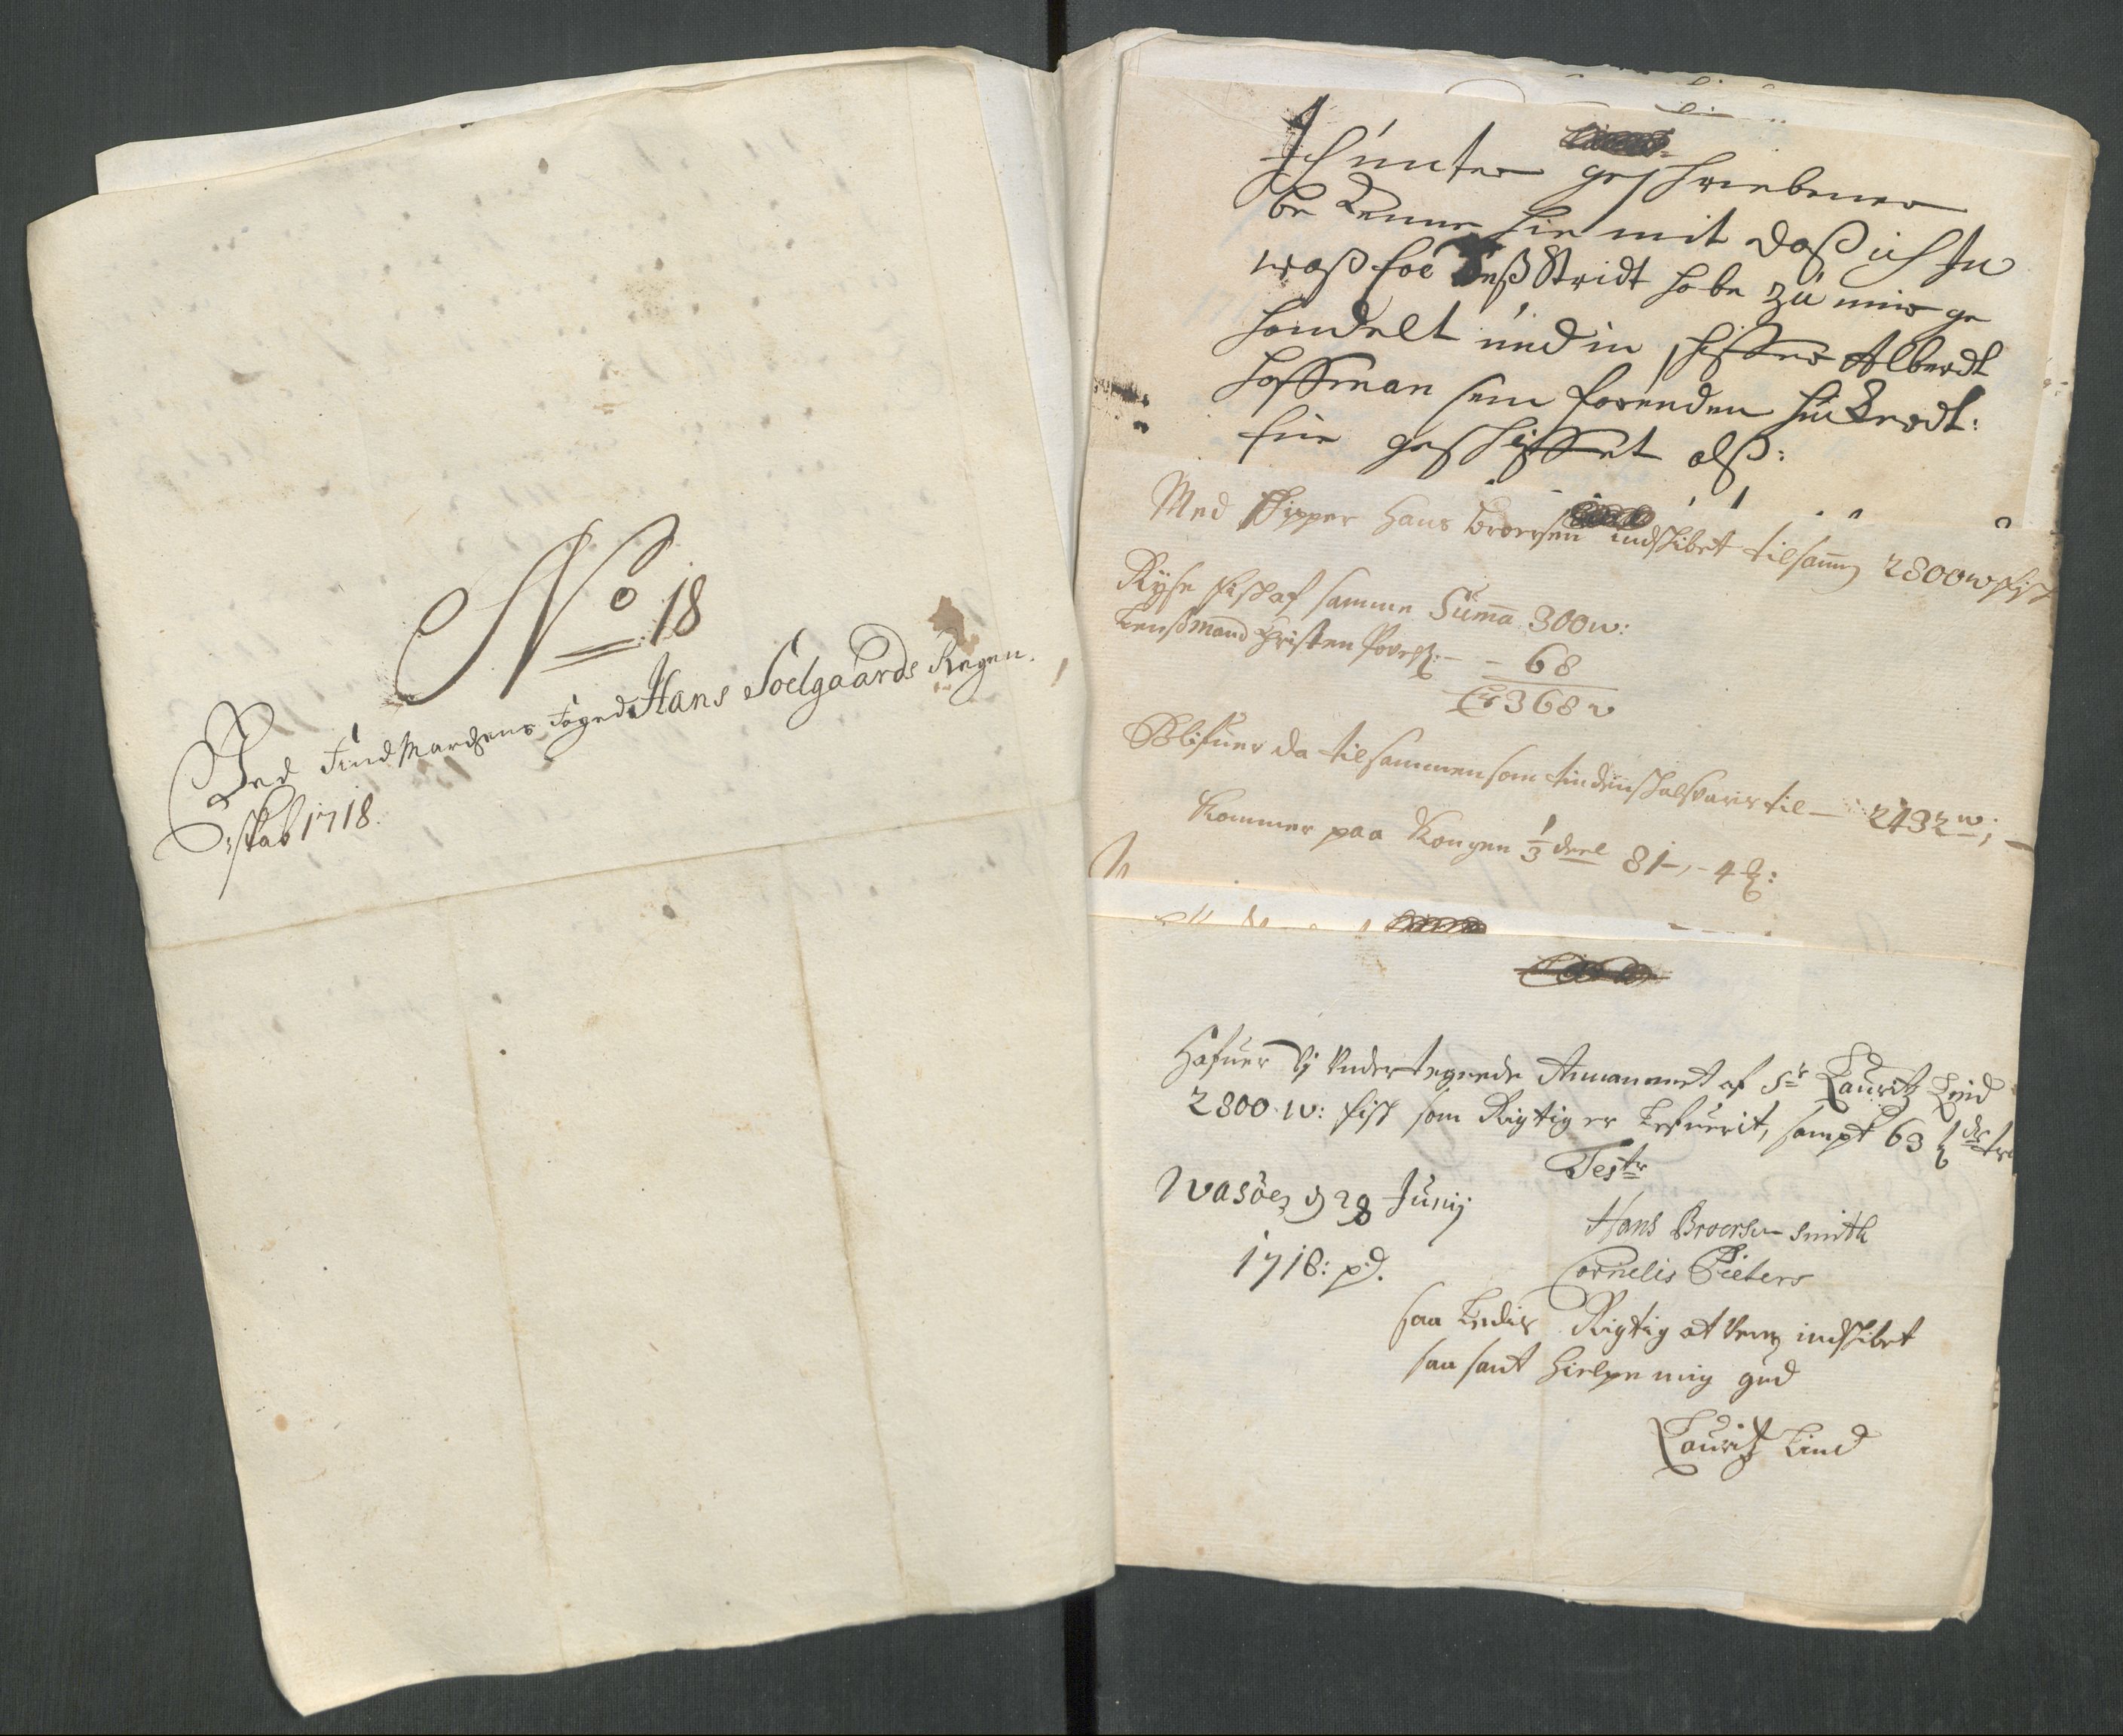 No 18
Ved Findmarchens Fogeds Hans Soelgaards Regen-
skab 1718.
Ich unter geschriebener
be kenne hie mit daß ich In
waß foe habe zu mir ge
handelt und in schiffer Alberdt
Hoffman sein
hie geschiffet alß:
Med Skipper Hans Broersen indskibet tilsamn 2800 w fisk
Ryse fisk af samme Suma 300 w:
Lensmand Christen Povels: - - 68
368 w
Blifuer da tilsammen som tienden skal svaris til — 2432 w: —
Kommer paa Kongen 1/3 deel 81 - 4
Hafuer Vj Undertegnede Annammet af Sr Lauritz Lind
2800 w: fisk som Rigtig er Lefuerit, sampt 63
Test
Wasöe d 28 Junij
1718: p.
Hans Broersen Smith
Cornelis Pieters
saa Ledis Rigtig at vere indskibet
saa sant hielpe mig gud
Lauritz Lind